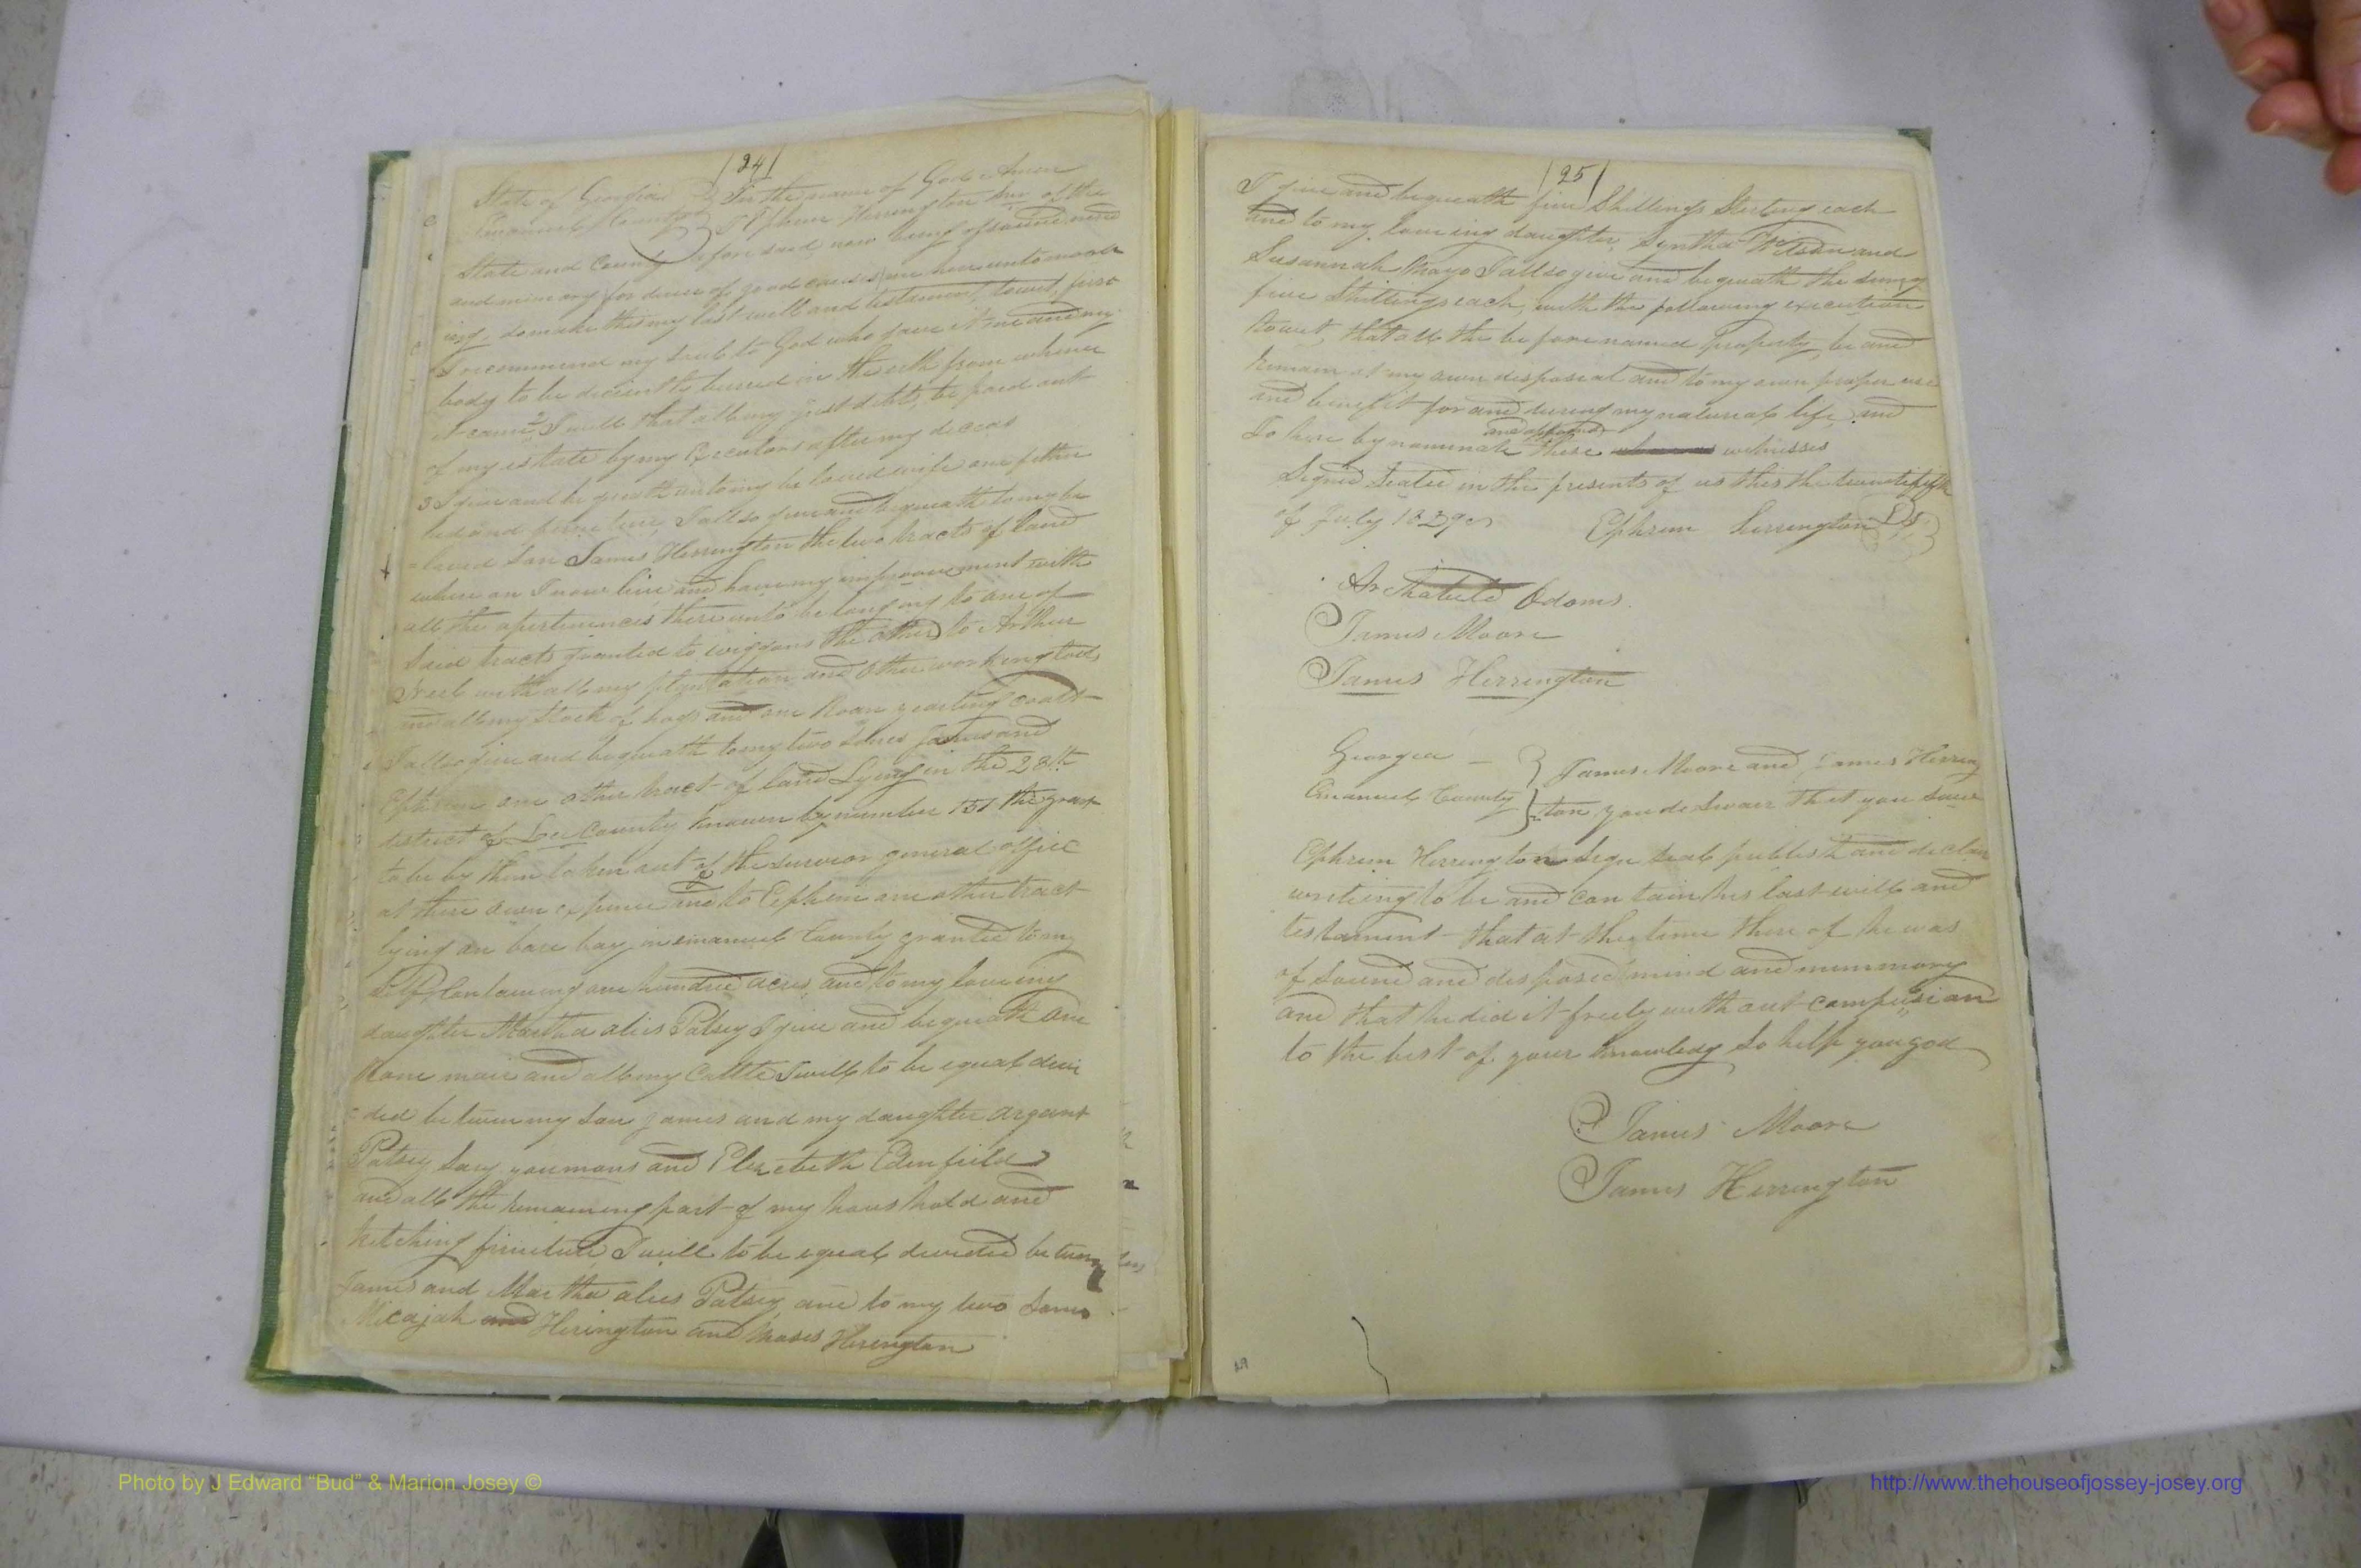 /24/
State of Georgia } In the name of God Amen
Emanuel County } I Ephrim Herrington Snr of the
State and County afore said now being of sound mind
and memory for divers of good causes me here unto moove
ing, do make this my last will and testament, towit, first
I recommend my soul to God who gave it me and my
body to be decentle burred in the erth from whence
it came 2 I will that all my just debts, be paid out
of my estate by my Executors after my deceas
3 I give and be queath unto my be loved wife one fether
bed and furniture, I allso give and bequeath to my be
loved son James Herrington the two tracts of land
where on I now live and have my improovement with
all the apertinences there unto be longing to one of
said tracts granted to wiggans the other to Arthur
with all my plantation and other working tools
and all my stock of hogs and one Roan yearling coalt
I allso give and bequeath to my two sones James and
Ephrim one other tract of land Lying in the 28th
district of Lee County known by number 151 the grant
to be by them taken out of the surveor general office
at there own expence and to Ephrim one other tract
lying on bare bay in emanuel County granted to my
self Containing one hundred acres and to my loveing
daughter Martha alies Patsey I give and bequeath one
Rone mair and all my Cattle I will to be equal devi
ded be tween my son James and my daughter argent
Patsey Sary youmans and Elizebeth Edenfield
and all the remaining part of my hous hold and
kitching firniture I will to be equal devided be tween
James and Martha alies Patsey and to my two Sones
Micajah and Herington and Moses Herington
/25/
I give and bequeath five Shillings Sterling each
and to my loveing daughter Sintha Wilson and
Susannah Mayo I allso give and bequeath the sum of
five Shillings each, with the following execution
towit, that all the be fore named property, be and
remain at my own disposeal and to my own proper use
and benefit for and during my natureal life, and
and appoint
Do here by nominate these witnesses
Signed Sealed in the presents of us this the twentififth
of July 1839 Ephrim Herrington
Odoms
James Moore
James Herrington
Georgia — } James Moore and James Herring
Emanuel County } ton you do Swair that you saw
Ephrim Herrington sign seal publish and declare
writeing to be and contain his last will and
testament – that at the time there of he was
of sound and disposed mind and memmory
and that he did it freely with out compusion
to the best of your knowledg So help you god
James Moore
James Herrington
Photo by J Edward “Bud” & Marion Josey ©
http://www.thehouseofjossey-josey.org